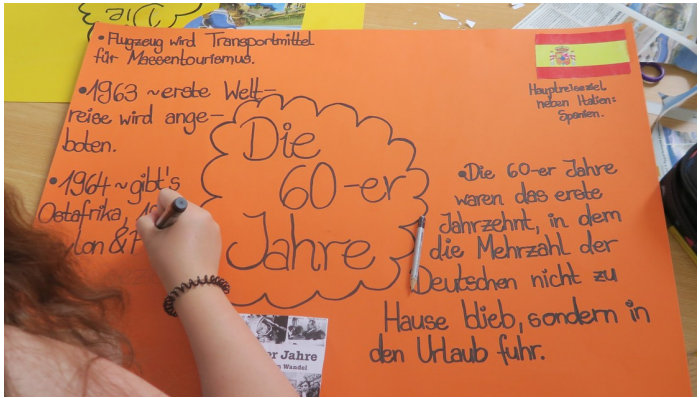 Die
• Flugzeug wird Transportmittel
für Massentourismus.
• 1963 ~ erste Welt-
reise wird ange-
boten.
• 1964 ~ gibt's
Ostafrika,
lon &
Die
60-er
Jahre
Hauptreiseziel
neben Italien:
Spanien.
• Die 60-er Jahre
waren das erste
Jahrzehnt, in dem
die Mehrzahl der
Deutschen nicht zu
Hause blieb, sondern in
den Urlaub fuhr.
er Jahre
Wandel